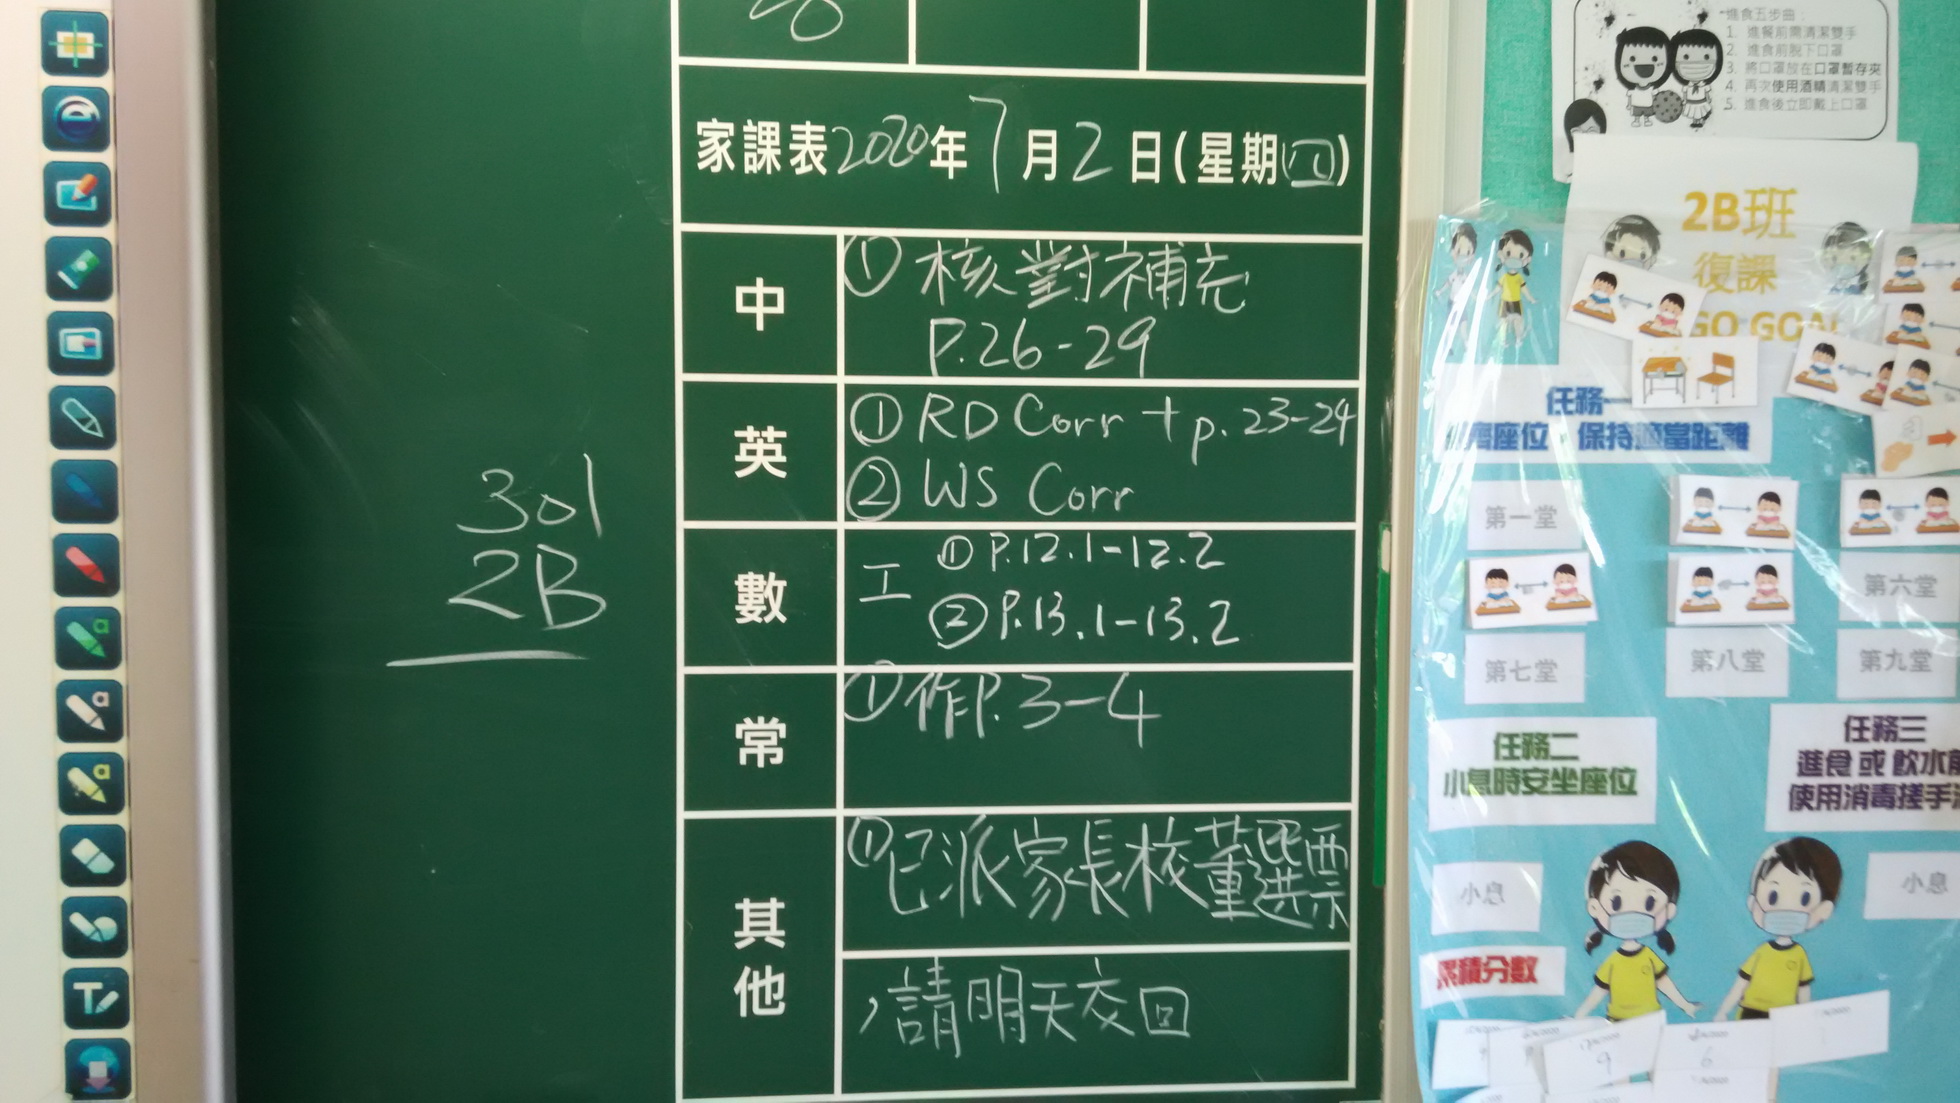 家課表2020年7月2日(星期四)
中
① 核對補充
P.26-29
英
① RD Corr + p.23-24
② WS Corr
數
工 ① P.12.1-12.2
② P.13.1-13.2
常
① 作P.3-4
其他
① 已派家長校董選票
，請明天交回
301
2B
進食五步曲：
1. 進餐前需清潔雙手
2. 進食前脫下口罩
3. 將口罩放在口罩暫存夾
4. 再次使用酒精清潔雙手
5. 進食後立即戴上口罩
2B班
復課
GO GOAL
任務一
座位，保持適當距離
第一堂
第六堂
第七堂
第八堂
第九堂
任務二
小息時安坐座位
任務三
進食 或 飲水前
使用消毒搓手
小息
小息
累積分數
9
6
a
a
a
T